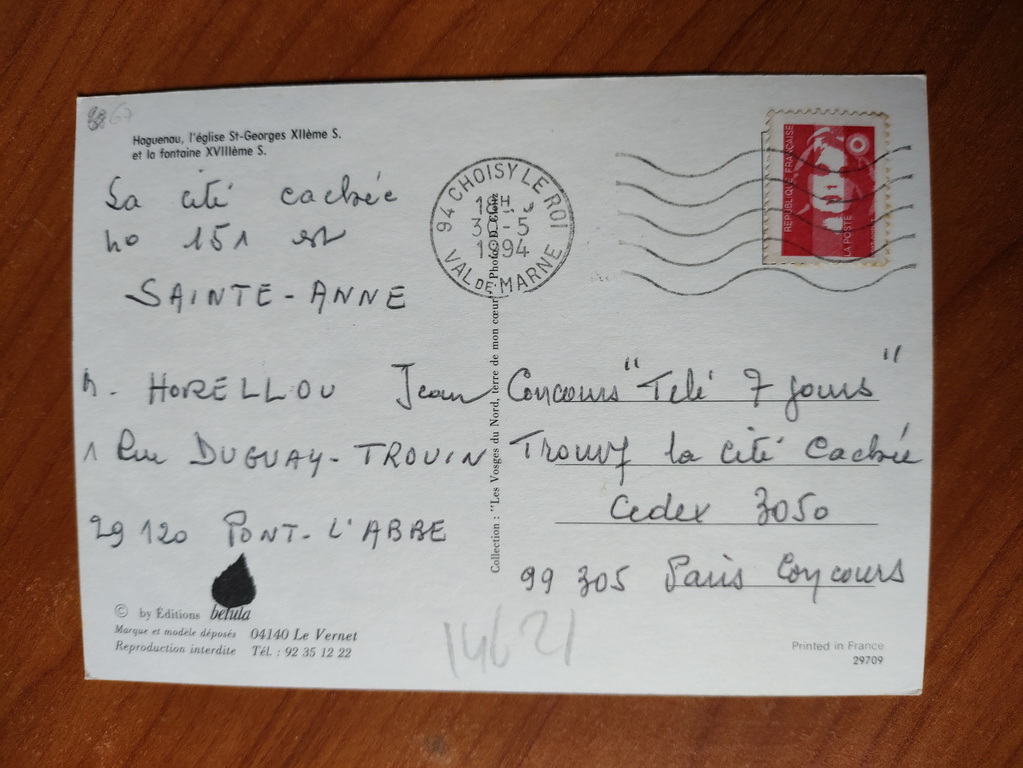 Haguenau, l'église St-Georges XIIème S.
et la fontaine XVIIIème S.
La cité cachée
no 151 est
SAINTE-ANNE
M. HORELLOU Jean
1 Rue DUGUAY-TROUIN
29 120 PONT-L'ABBE
© by Éditions betula
Marque et modèle déposés 04140 Le Vernet
Reproduction interdite Tél. : 92 35 12 22
Collection : "Les Vosges du Nord, terre de mon cœur" Photo
94 CHOISY LE ROI
18H
30-5
1994
VAL DE MARNE
REPUBLIQUE FRANÇAISE
LA POSTE
Concours "Télé 7 jours"
Trouvez la cité Cachée
Cedex 3050
99 305 Paris Concours
14621
Printed in France
29709